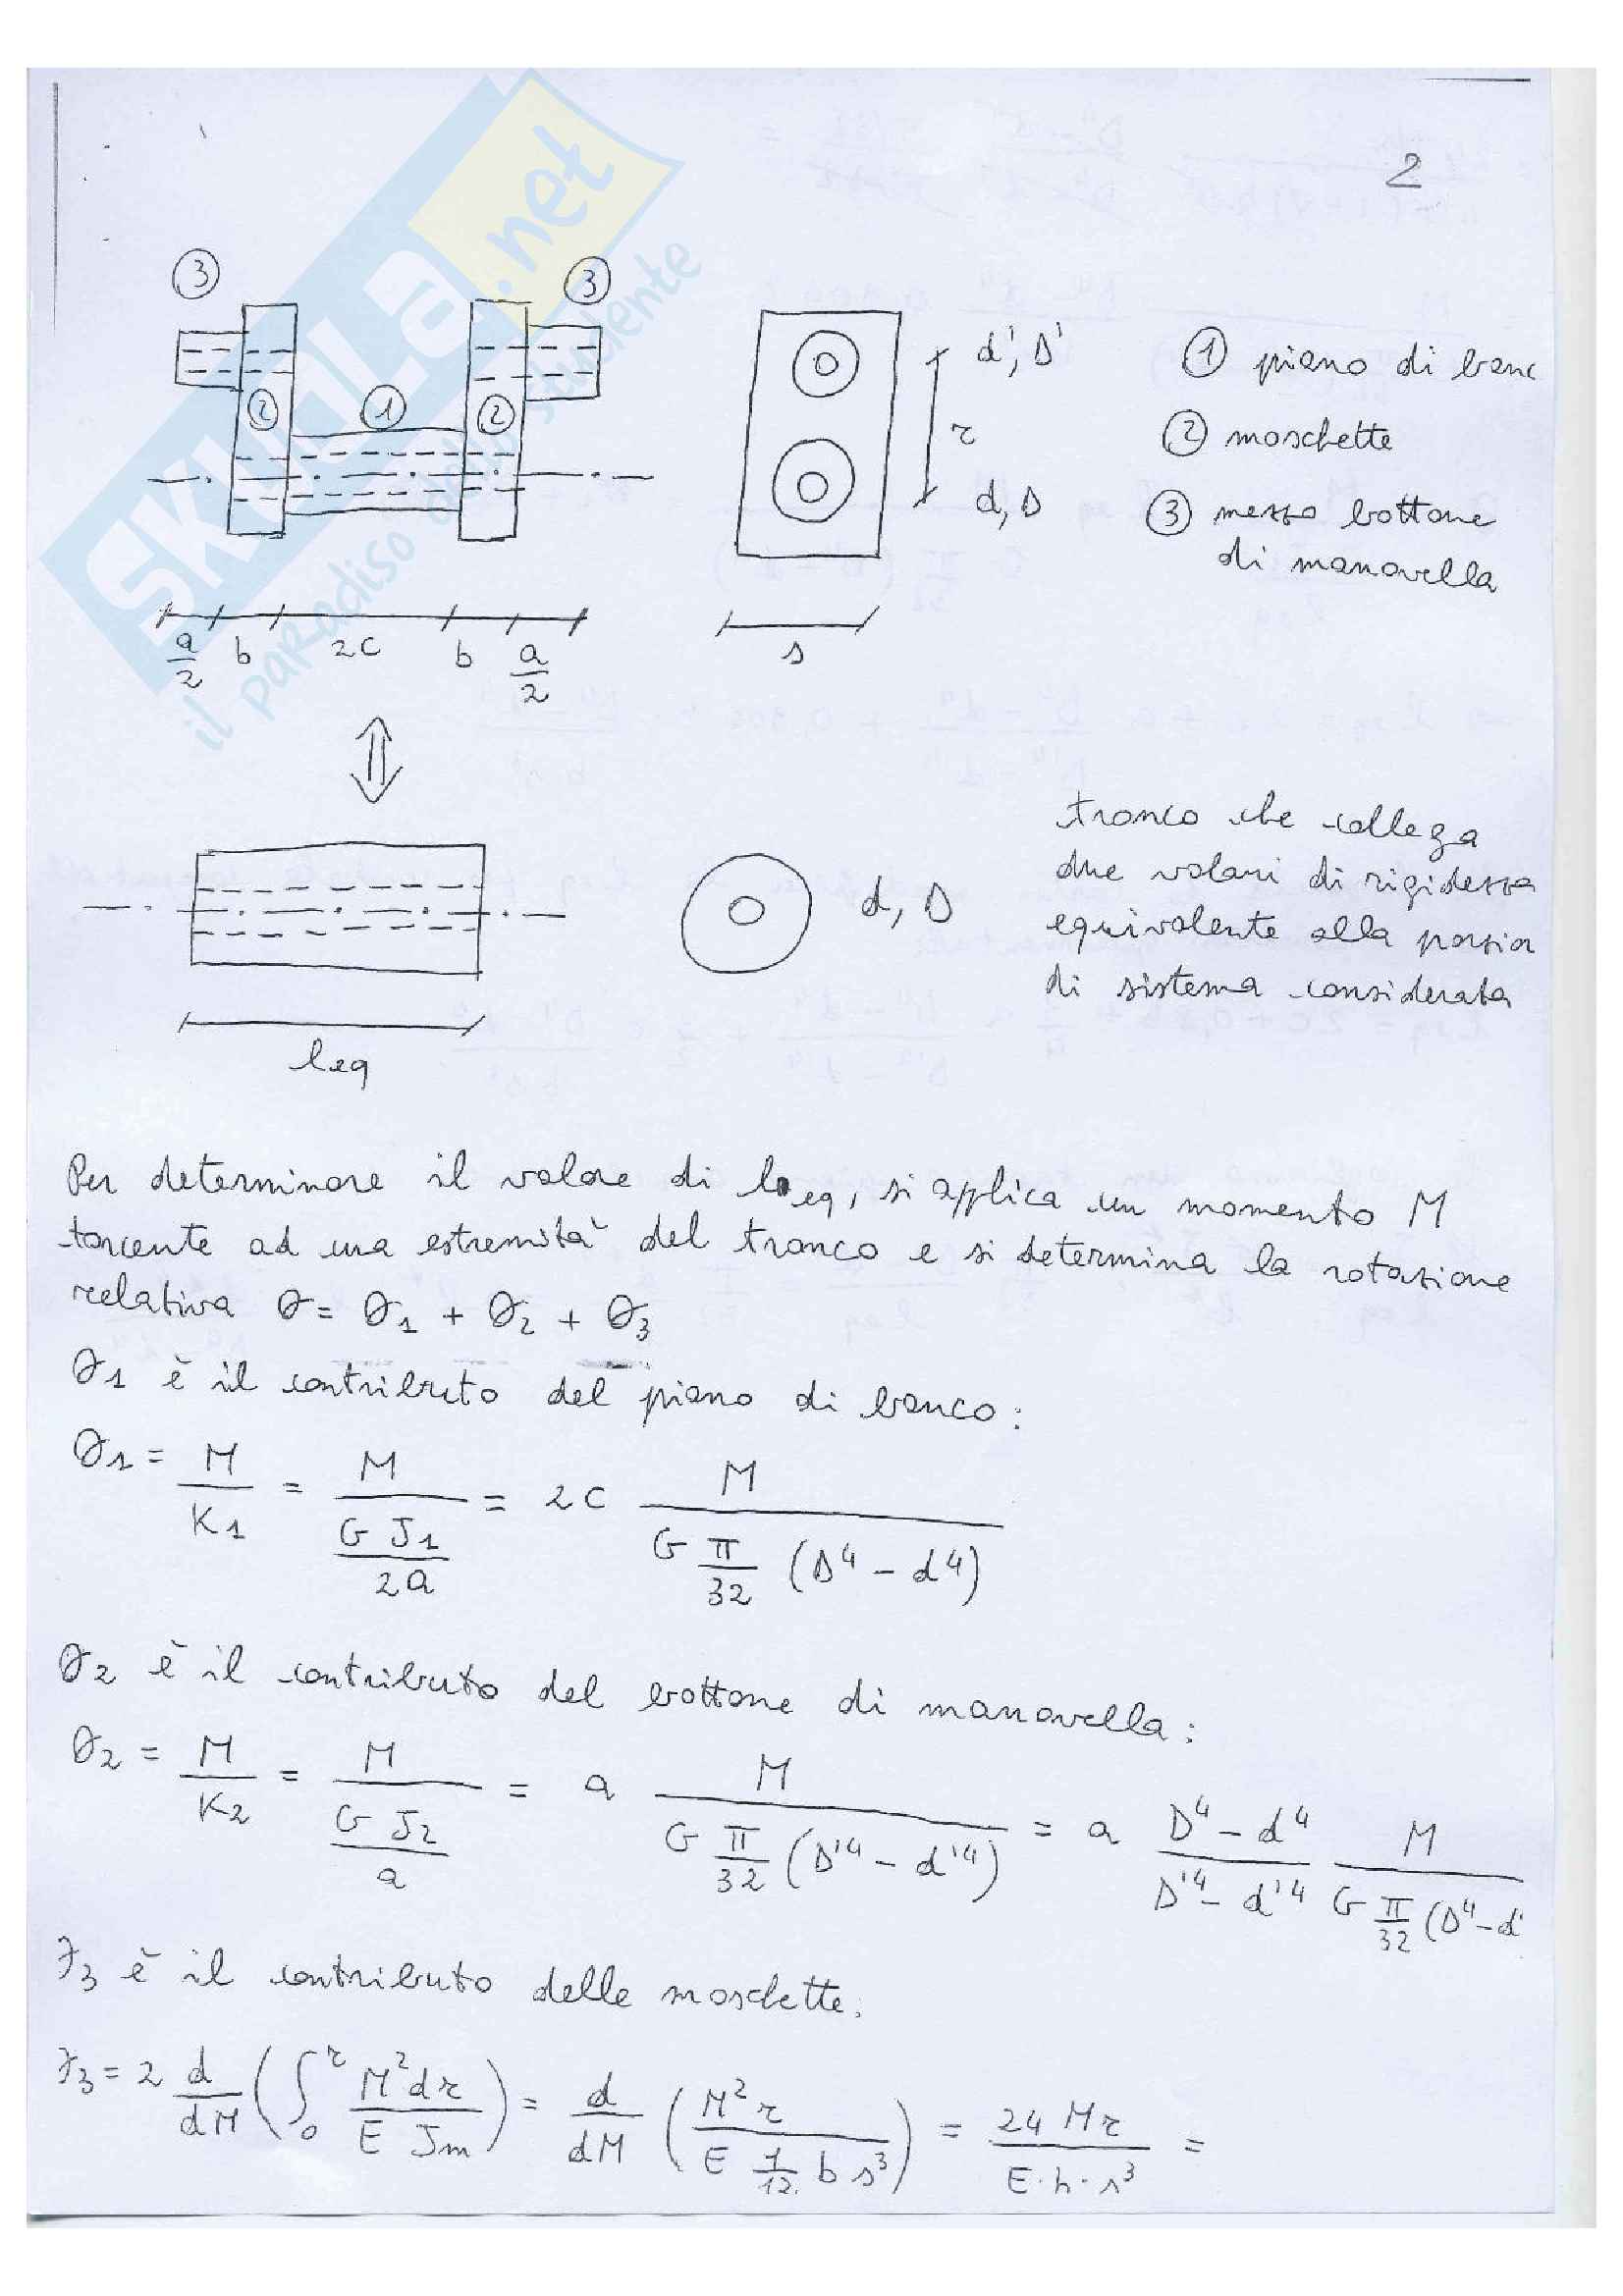 2
SKUOLA.net
il paradiso dello studente
3 3
2 1 2
a/2 b 2c b a/2
d', D'
r
d, D
s
1 piano di banc
2 maschette
3 mezzo bottone
di manovella
leq
d, D
tronco che collega
due volani di rigidezza
equivalente alla porzion
di sistema considerata
Per determinare il valore di leq, si applica un momento M
torcente ad una estremità del tronco e si determina la rotazione
relativa θ = θ1 + θ2 + θ3
θ1 è il contributo del piano di banco:
θ1 = M/K1 = M/(G J1/2a) = 2c M/(G π/32 (D^4 - d^4))
θ2 è il contributo del bottone di manovella:
θ2 = M/K2 = M/(G J2/a) = a M/(G π/32 (D'^4 - d'^4)) = a (D^4 - d^4)/(D'^4 - d'^4) M/(G π/32 (D^4 - d
θ3 è il contributo delle maschette.
θ3 = 2 d/dM (∫0^r M^2 dr/(E Jm)) = d/dM (M^2 r/(E 1/12 b s^3)) = 24 M r/(E · b · s^3) =